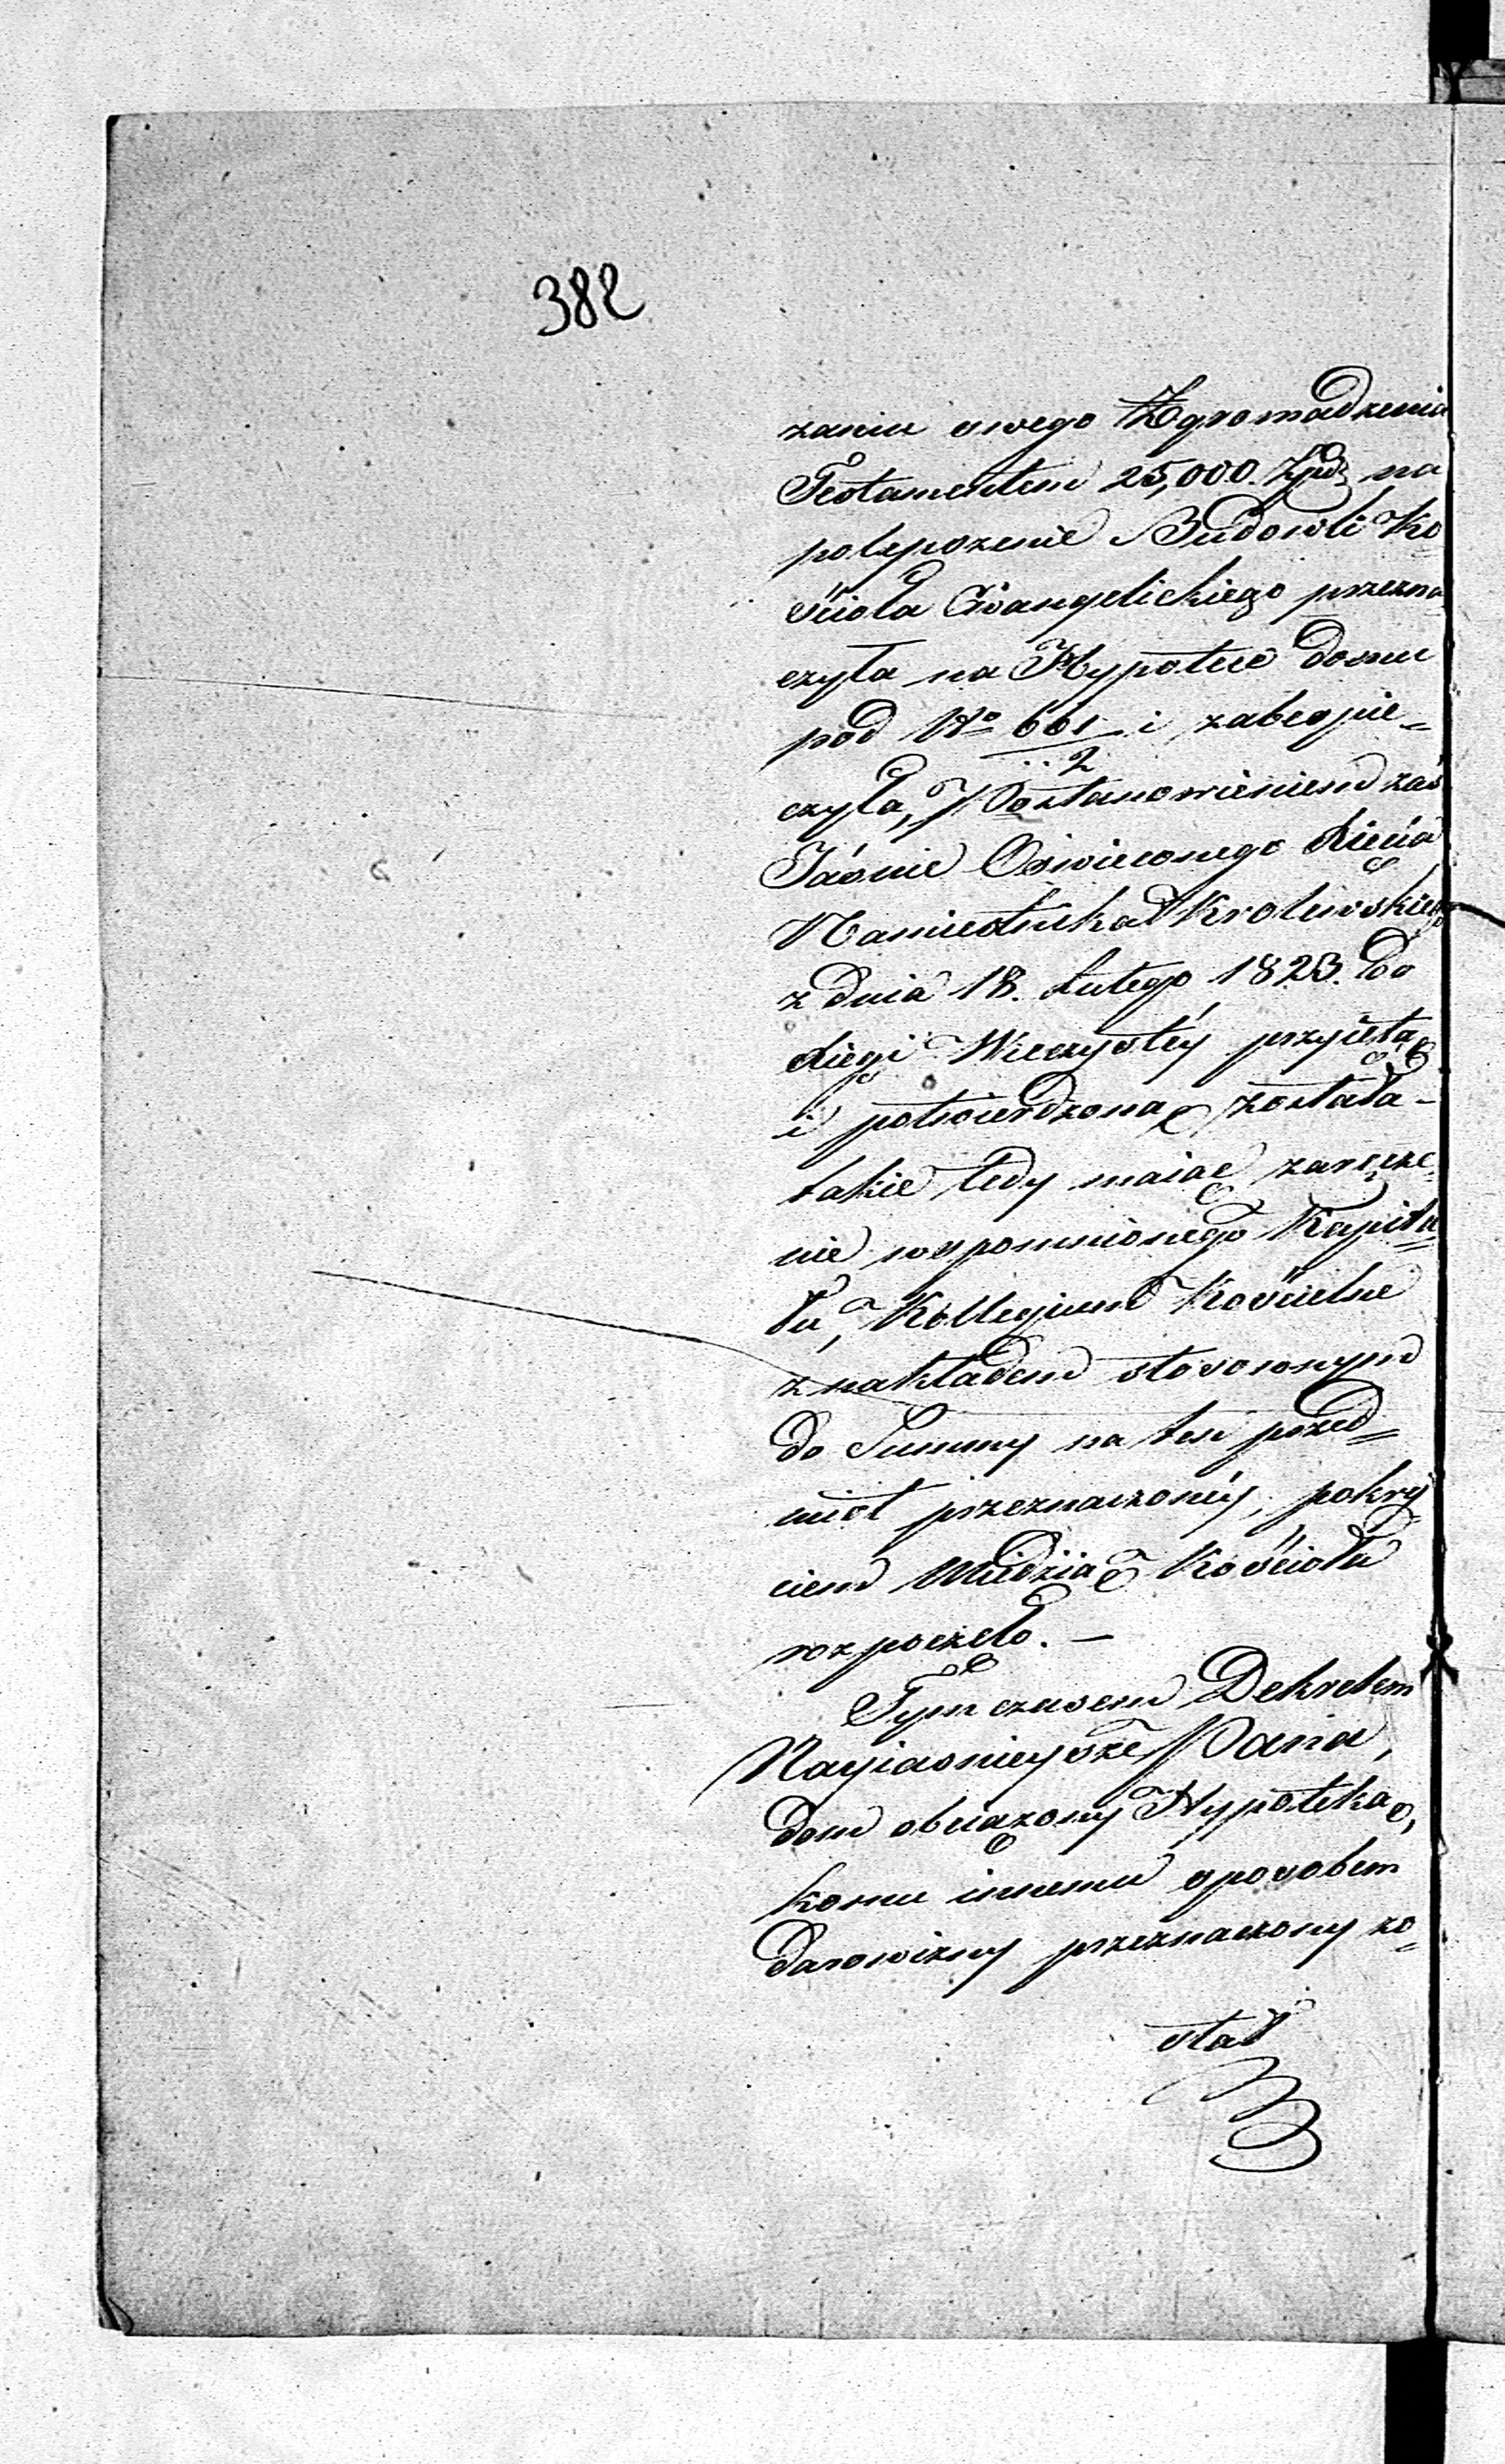 382
zaniu swego Zgromadzenia
Testamentem 25,000. Złpol na
polepszenie Budowli Ko
ścioła Ewangelickiego przezna
czyła na Hypotece domu
pod No 661/2 i zabespie-
czyła, Postanowieniem zaś
Jaśnie Oświeconego Xięcia
Namiestnika Krolewskiego
z dnia 18. Lutego 1823. do
Xięgi Wieczystéy przyiętą
i potwierdzoną została-
takie tedy maiąc zaręcze
nie wspomnionego Kapita=
łu, Kollegium Kościelne
z nakładem stosownym
do Summy na ten przed=
miot przeznaczonéy, pokry
ciem Miedzią Kościoła
rozpoczęło. —
Tymczasem Dekretem
Nayiaśnieysze Pana,
dom obciążony Hypoteką,
komu innemu sposobem
darowizny przeznaczony zo=
stał